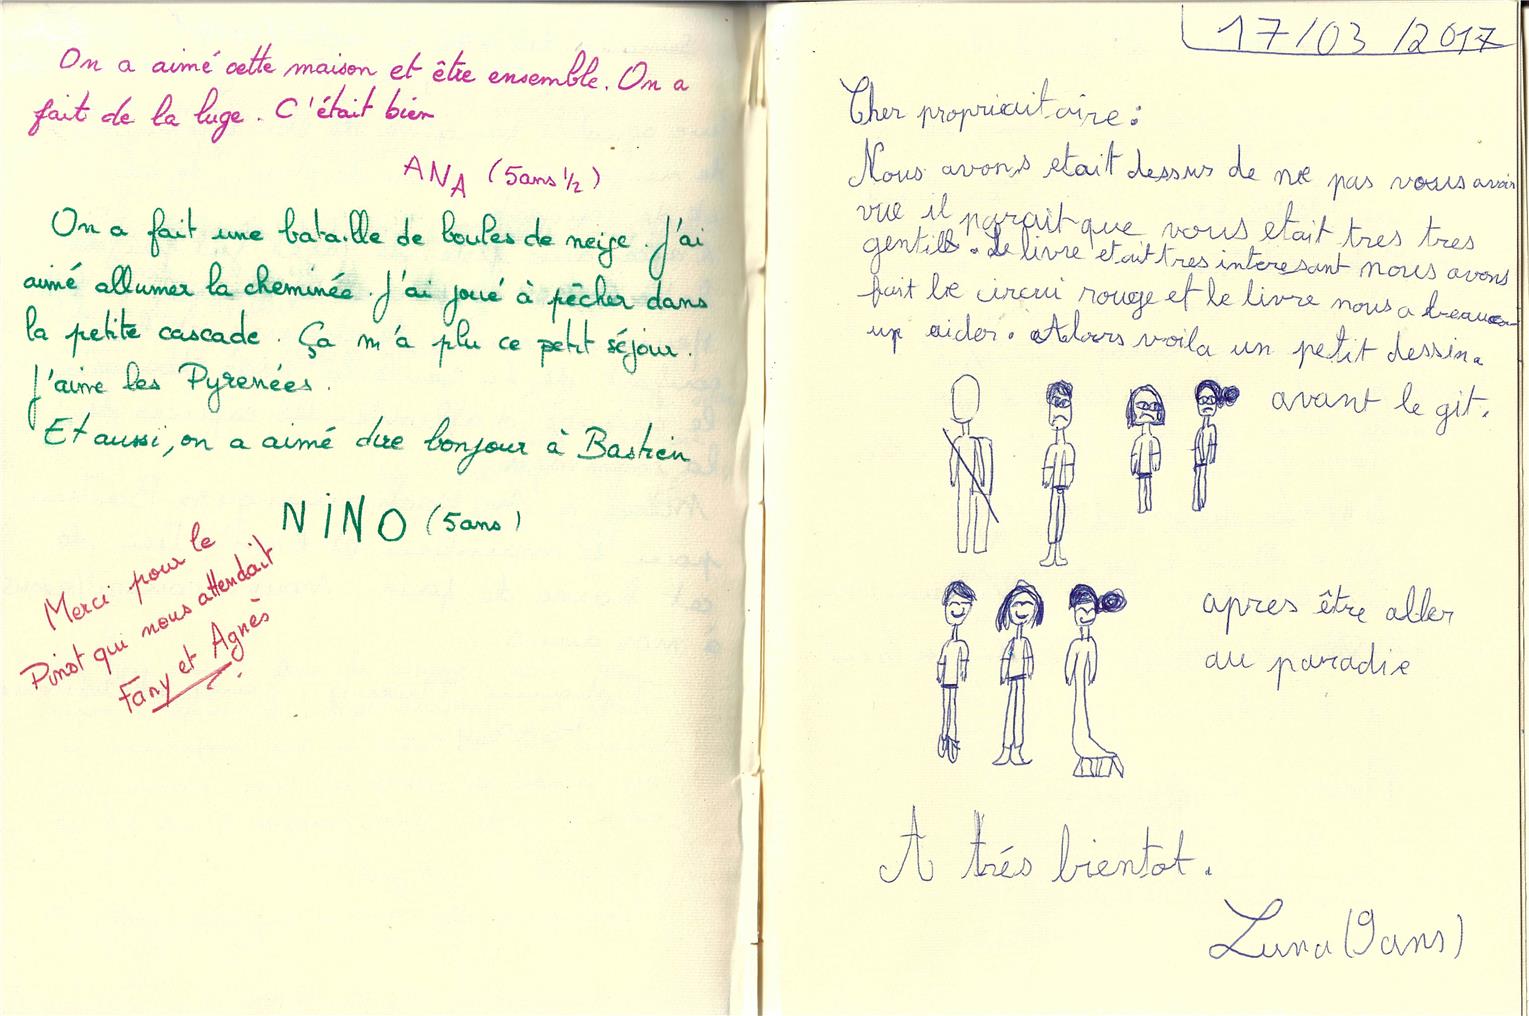 On a aimé cette maison et être ensemble. On a
fait de la luge. C'était bien
ANA (5ans 1/2)
On a fait une bataille de boules de neige. J'ai
aimé allumer la cheminée. J'ai joué à pêcher dans
la petite cascade. Ça m'a plu ce petit séjour.
J'aime les Pyrenées.
Et aussi, on a aimé dire bonjour à Bastien
NINO (5ans)
Merci pour le
Pinot qui nous attendait
Fany et Agnès
17/03/2017
Cher propriaitaire:
Nous avons etait dessus de ne pas vous avoir
vue il parait que vous etait tres tres
gentills. Le livre etait tres interesant nous avons
fait le circui rouge et le livre nous a beauco-
up aider. Alors voila un petit dessin.
avant le git.
apres être aller
au paradie
A trés bientot.
Luna (9ans)